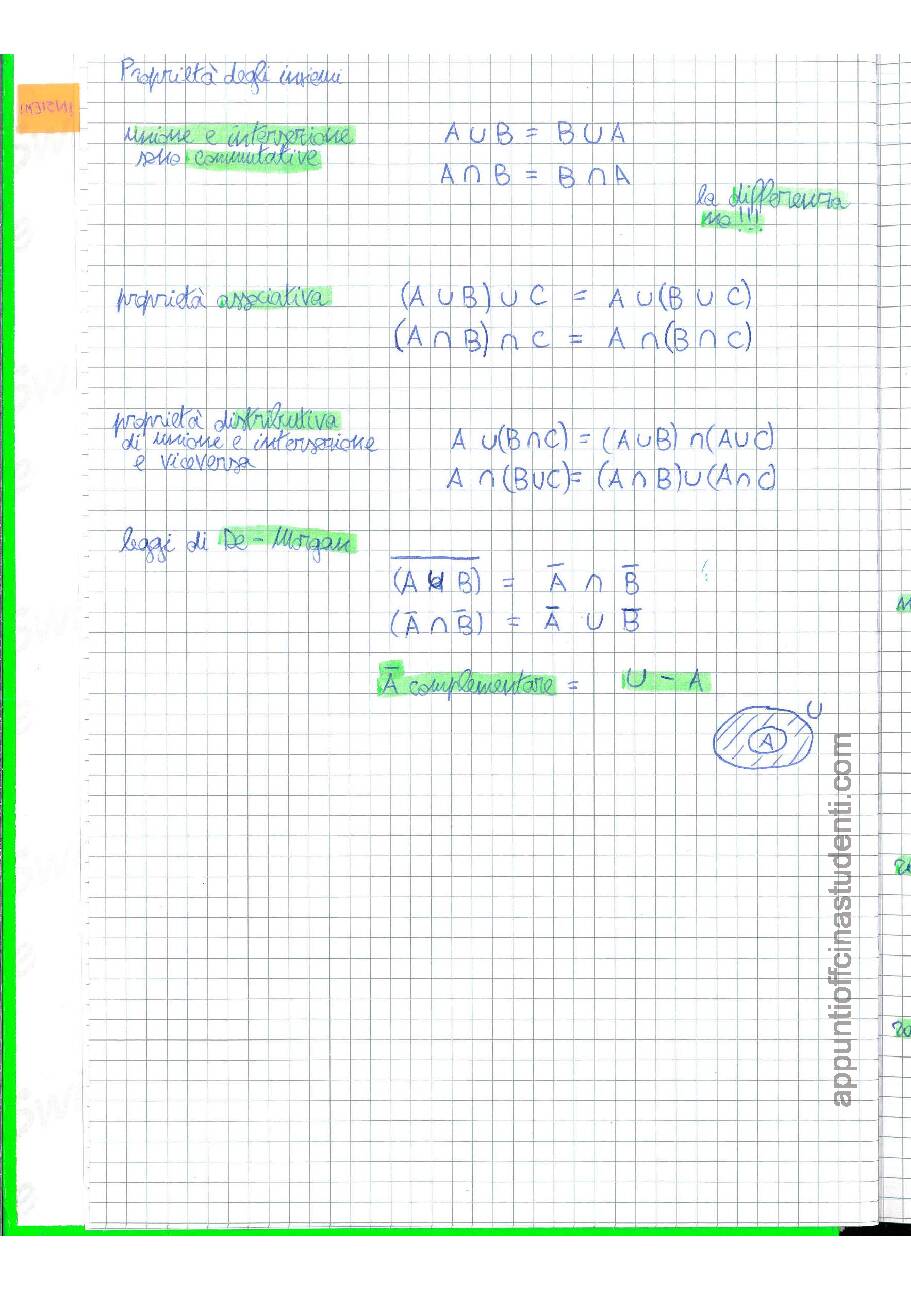 Proprietà degli insiemi
INSIEMI
unione e intersezione
sono commutative
A ∪ B = B ∪ A
A ∩ B = B ∩ A
la differenza
no!!!
proprietà associativa
(A ∪ B) ∪ C = A ∪ (B ∪ C)
(A ∩ B) ∩ C = A ∩ (B ∩ C)
proprietà distributiva
di unione e intersezione
e viceversa
A ∪ (B ∩ C) = (A ∪ B) ∩ (A ∪ C)
A ∩ (B ∪ C) = (A ∩ B) ∪ (A ∩ C)
leggi di De-Morgan
(A̅ ̅∪̅ ̅B̅) = A̅ ∩ B̅
(A̅ ∩ B̅) = A̅ ∪ B̅
A̅ complementare = U - A
U
A
appuntiofficinastudenti.com